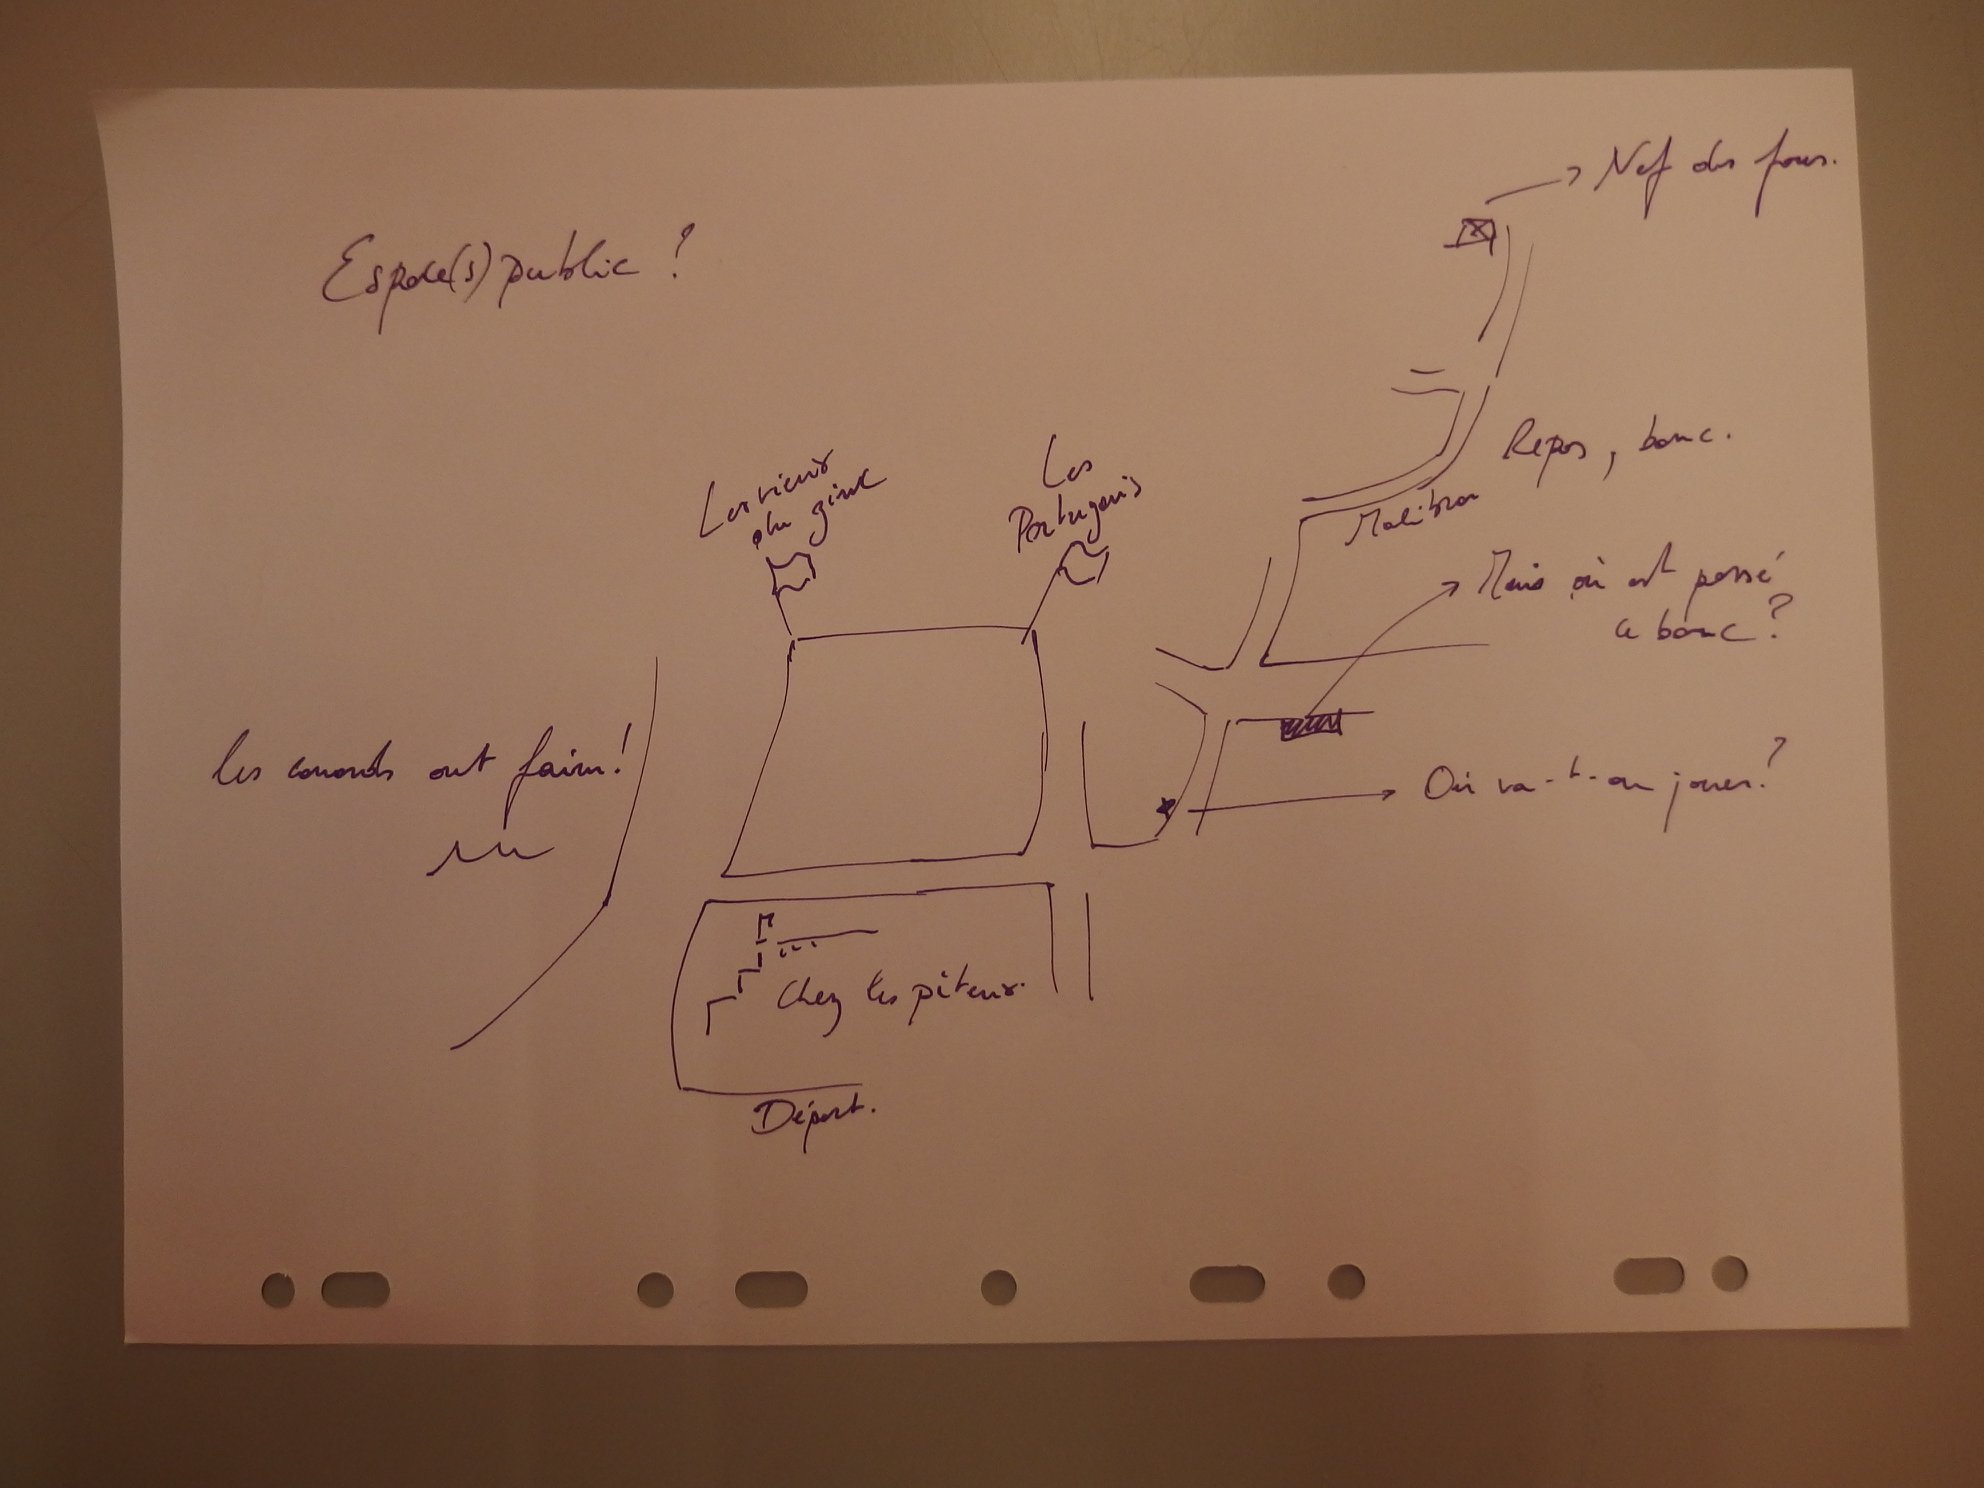 Nef des fous.
Espace(s) public ?
Repos, banc.
Les vieux
du zinc
Les
Portugais
Malibran
Mais où est passé
ce banc ?
les canards ont faim !
Où va-t-on jouer ?
Chez les piteux.
Départ.